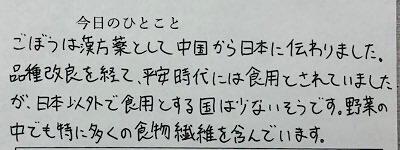 今日のひとこと
ごぼうは漢方薬として中国から日本に伝わりました。
品種改良を経て、平安時代には食用とされていました
が、日本以外で食用とする国は少ないそうです。野菜の
中でも特に多くの食物繊維を含んでいます。